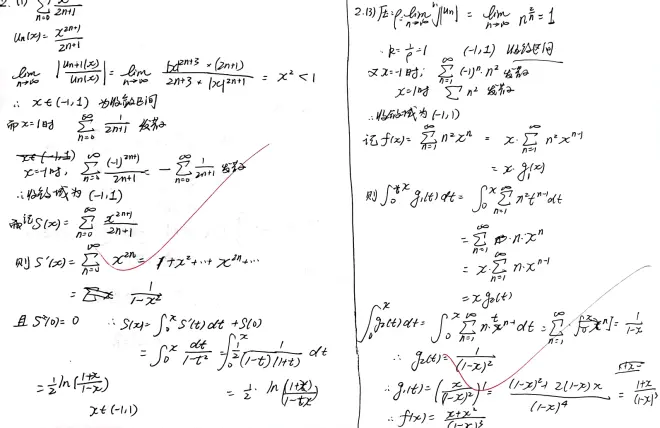 2. (1) ∑_{n=0}^{∞} x^{2n+1}/(2n+1)
u_n(x) = x^{2n+1}/(2n+1)
lim_{n→∞} |u_{n+1}(x)/u_n(x)| = lim_{n→∞} |x|^{2n+3} × (2n+1) / (2n+3 × |x|^{2n+1}) = x² < 1
∴ x∈(-1,1) 为收敛区间
而 x=1时 ∑_{n=0}^{∞} 1/(2n+1) 发散
x=-1时, ∑_{n=0}^{∞} (-1)^{2n+1}/(2n+1) = -∑_{n=0}^{∞} 1/(2n+1) 发散
∴收敛域为 (-1,1)
记 S(x) = ∑_{n=0}^{∞} x^{2n+1}/(2n+1)
则 S'(x) = ∑_{n=0}^{∞} x^{2n} = 1+x²+…+x^{2n}+…
= 1/(1-x²)
且 S(0)=0 ∴ S(x) = ∫_0^x S'(t)dt + S(0)
= ∫_0^x dt/(1-t²) = ∫_0^x 1/2 1/((1-t)(1+t)) dt
= 1/2 ln(1+x/1-x) = 1/2 · ln(1+x/1-x)
x∈(-1,1)
2.(3) ρ = lim_{n→∞} ⁿ√|u_n| = lim_{n→∞} n^{2/n} = 1
∴ R = 1/ρ = 1 (-1,1) 收敛区间
又 x=-1时; ∑_{n=1}^{∞} (-1)^n n² 发散
x=1时 ∑ n² 发散
∴收敛域为 (-1,1)
记 f(x) = ∑_{n=1}^{∞} n² x^n = x·∑_{n=1}^{∞} n² x^{n-1}
= x·g₁(x)
则 ∫_0^x g₁(t)dt = ∫_0^x ∑_{n=1}^{∞} n² t^{n-1} dt
= ∑_{n=1}^{∞} n·x^n
= x·∑_{n=1}^{∞} n·x^{n-1}
= x g₂(t)
∫_0^x g₂(t)dt = ∫_0^x ∑_{n=1}^{∞} n·t^{n-1} dt = ∑_{n=1}^{∞} x^n = 1/(1-x)
∴ g₂(t) = 1/(1-x)²
∴ g₁(t) = (x/(1-x)²)' = ((1-x)² + 2(1-x)x)/(1-x)⁴ = (1+x)/(1-x)³
∴ f(x) = (x+x²)/(1-x)³